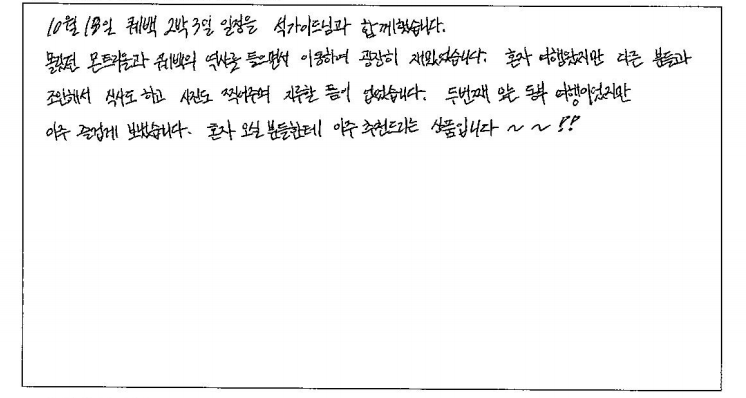 10월 18일 퀘백 2박3일 일정을 석가이드님과 함께했습니다.
몰랐던 몬트리올과 퀘백의 역사를 들으면서 이동하여 굉장히 재밌었습니다. 혼자 여행왔지만 다른 분들과
조인해서 식사도 하고 사진도 찍어주며 지루할 틈이 없었습니다. 두번째 오는 동부 여행이었지만
아주 즐겁게 보냈습니다. 혼자 오실 분들한테 아주 추천드리는 상품입니다 ~ ~ !!